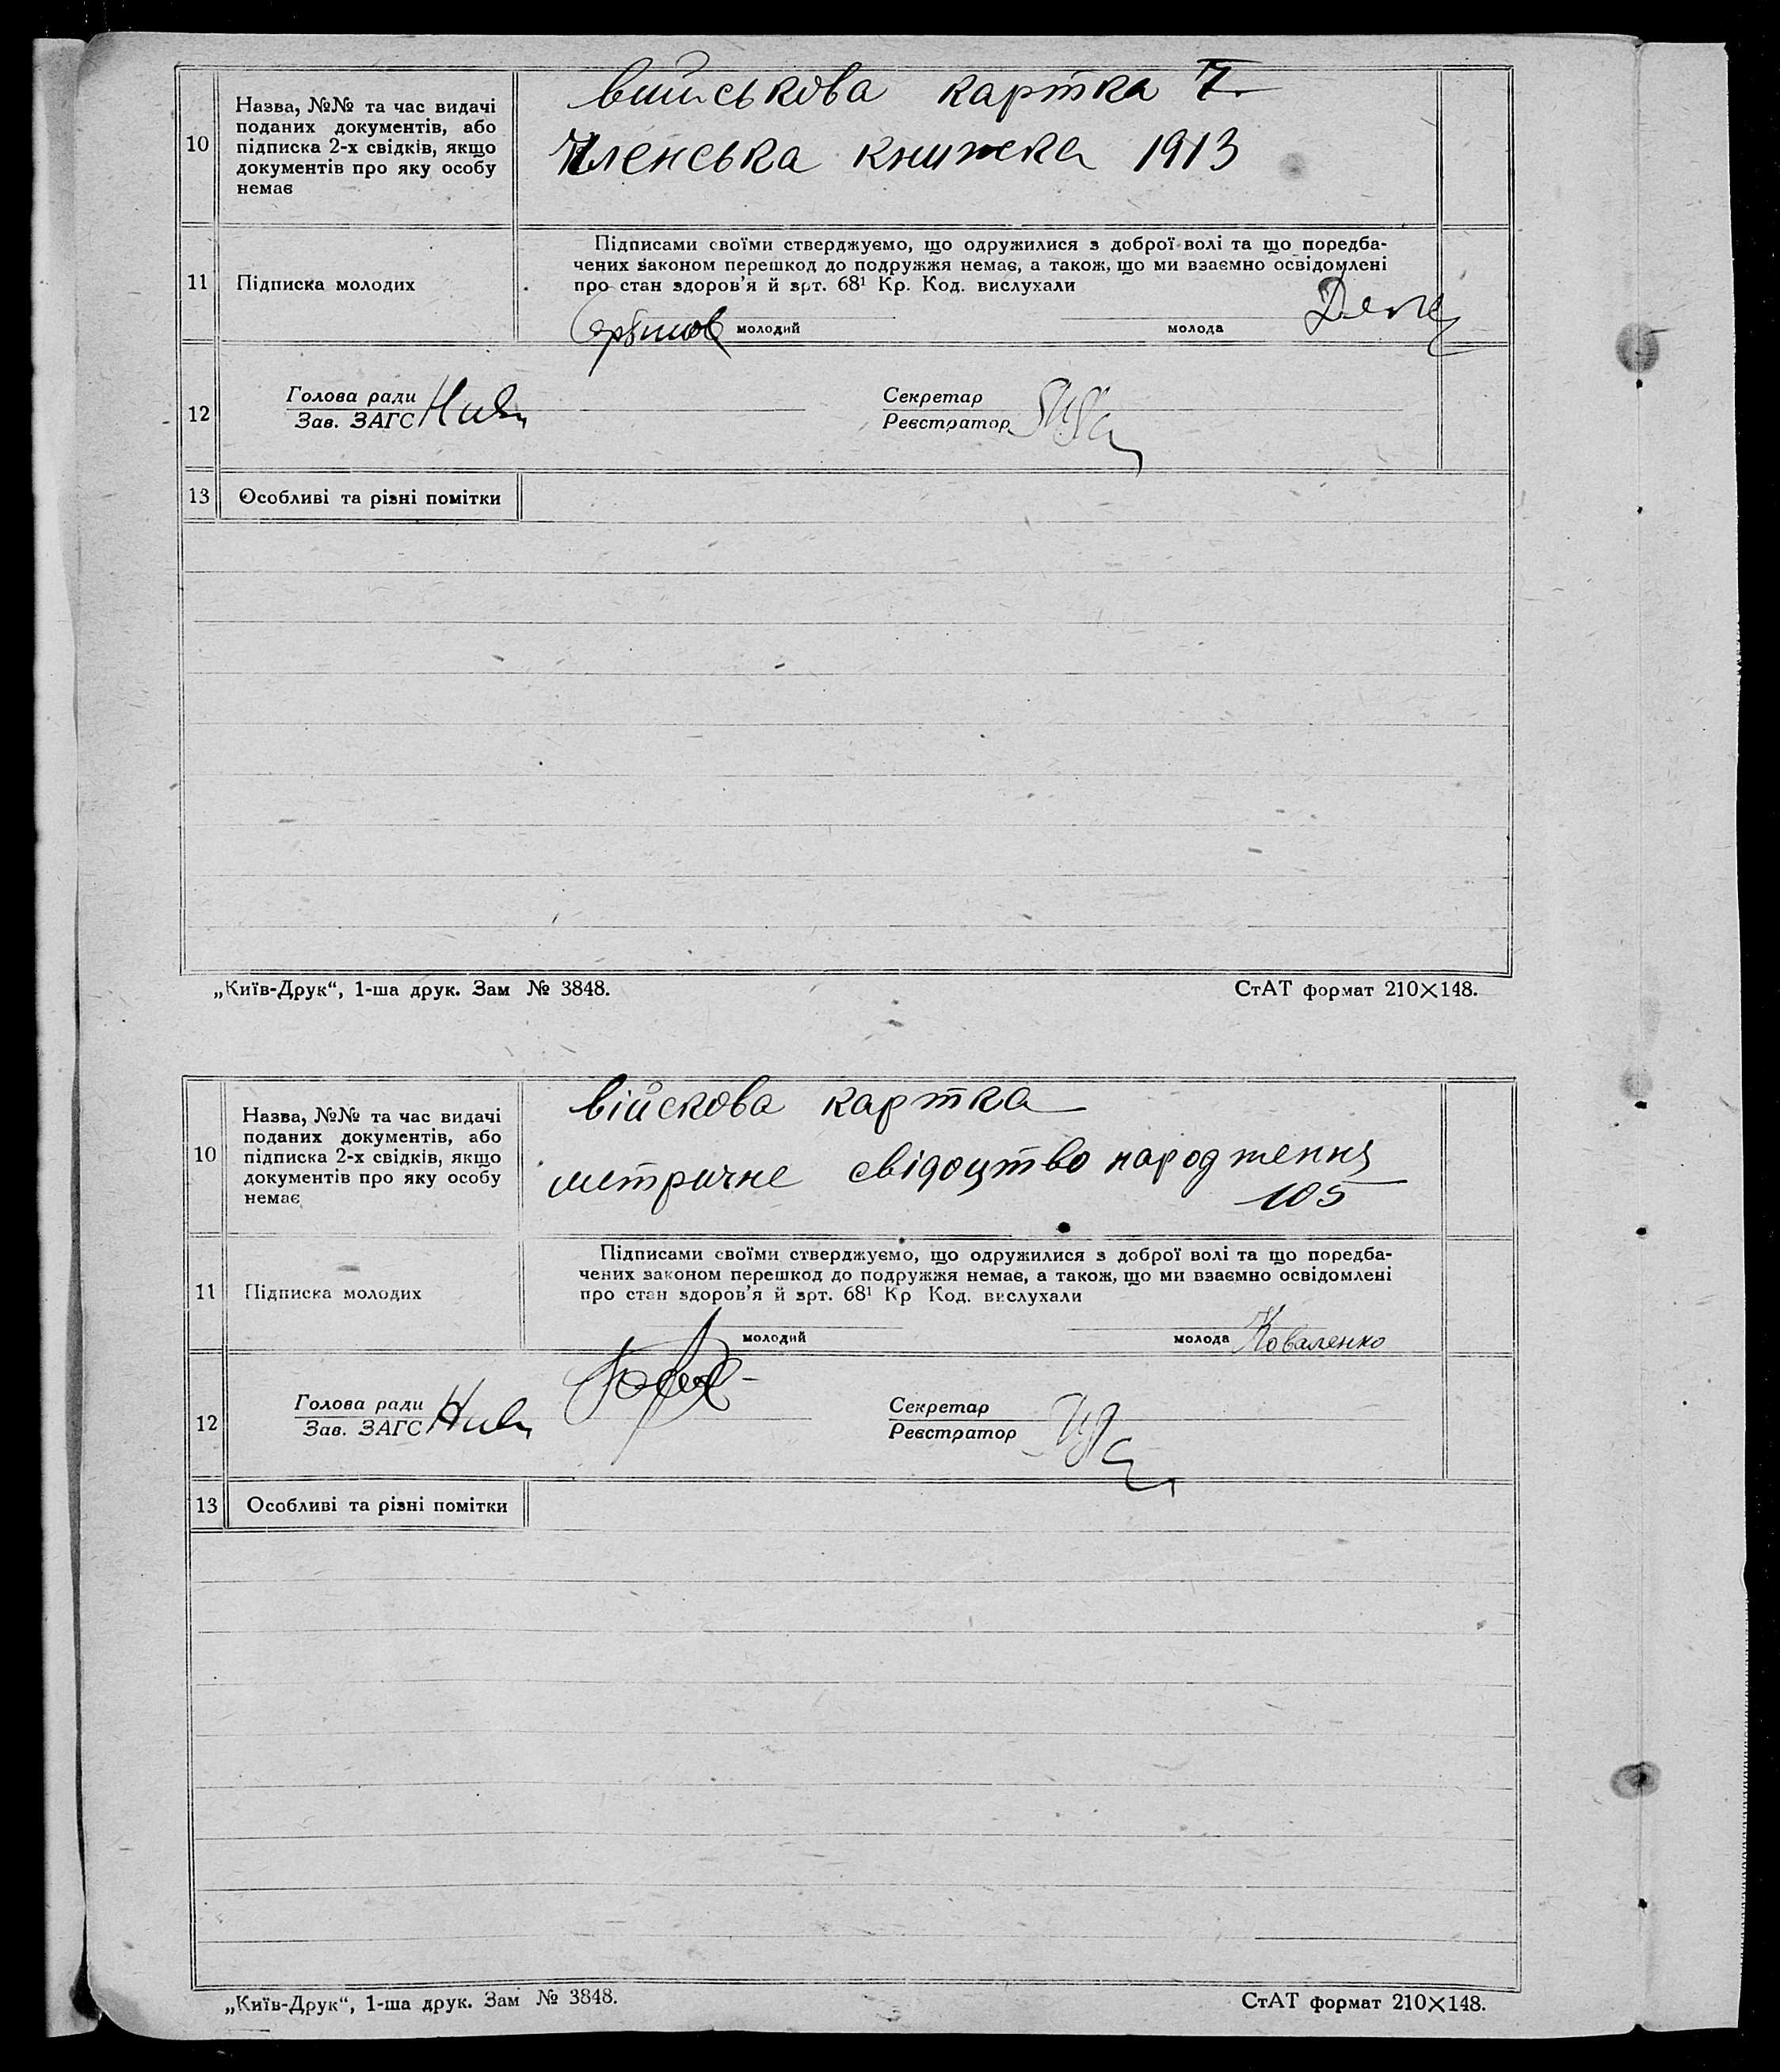 10
Назва, №№ та час видачі
поданих документів, або
підписка 2-х свідків, якщо
документів про яку особу
немає
військова картка
Членська книжка 1913
11
Підписка молодих
Підписами своїми стверджуємо, що одружилися з доброї волі та що поредба-
чених законом перешкод до подружжя немає, а також, що ми взаємно освідомлені
про стан здоров'я й зрт. 68¹ Кр. Код. вислухали
молодий
молода
12
Голова ради
Зав. ЗАГС
Секретар
Реєстратор
13
Особливі та різні помітки
„Київ-Друк“, 1-ша друк. Зам № 3848.
СтАТ формат 210×148.
10
Назва, №№ та час видачі
поданих документів, або
підписка 2-х свідків, якщо
документів про яку особу
немає
війскова картка
метричне свідоцтво народження
105
11
Підписка молодих
Підписами своїми стверджуємо, що одружилися з доброї волі та що поредба-
чених законом перешкод до подружжя немає, а також, що ми взаємно освідомлені
про стан здоров'я й зрт. 68¹ Кр Код. вислухали
молодий
молода Коваленко
12
Голова ради
Зав. ЗАГС
Секретар
Реєстратор
13
Особливі та різні помітки
„Київ-Друк“, 1-ша друк. Зам № 3848.
СтАТ формат 210×148.